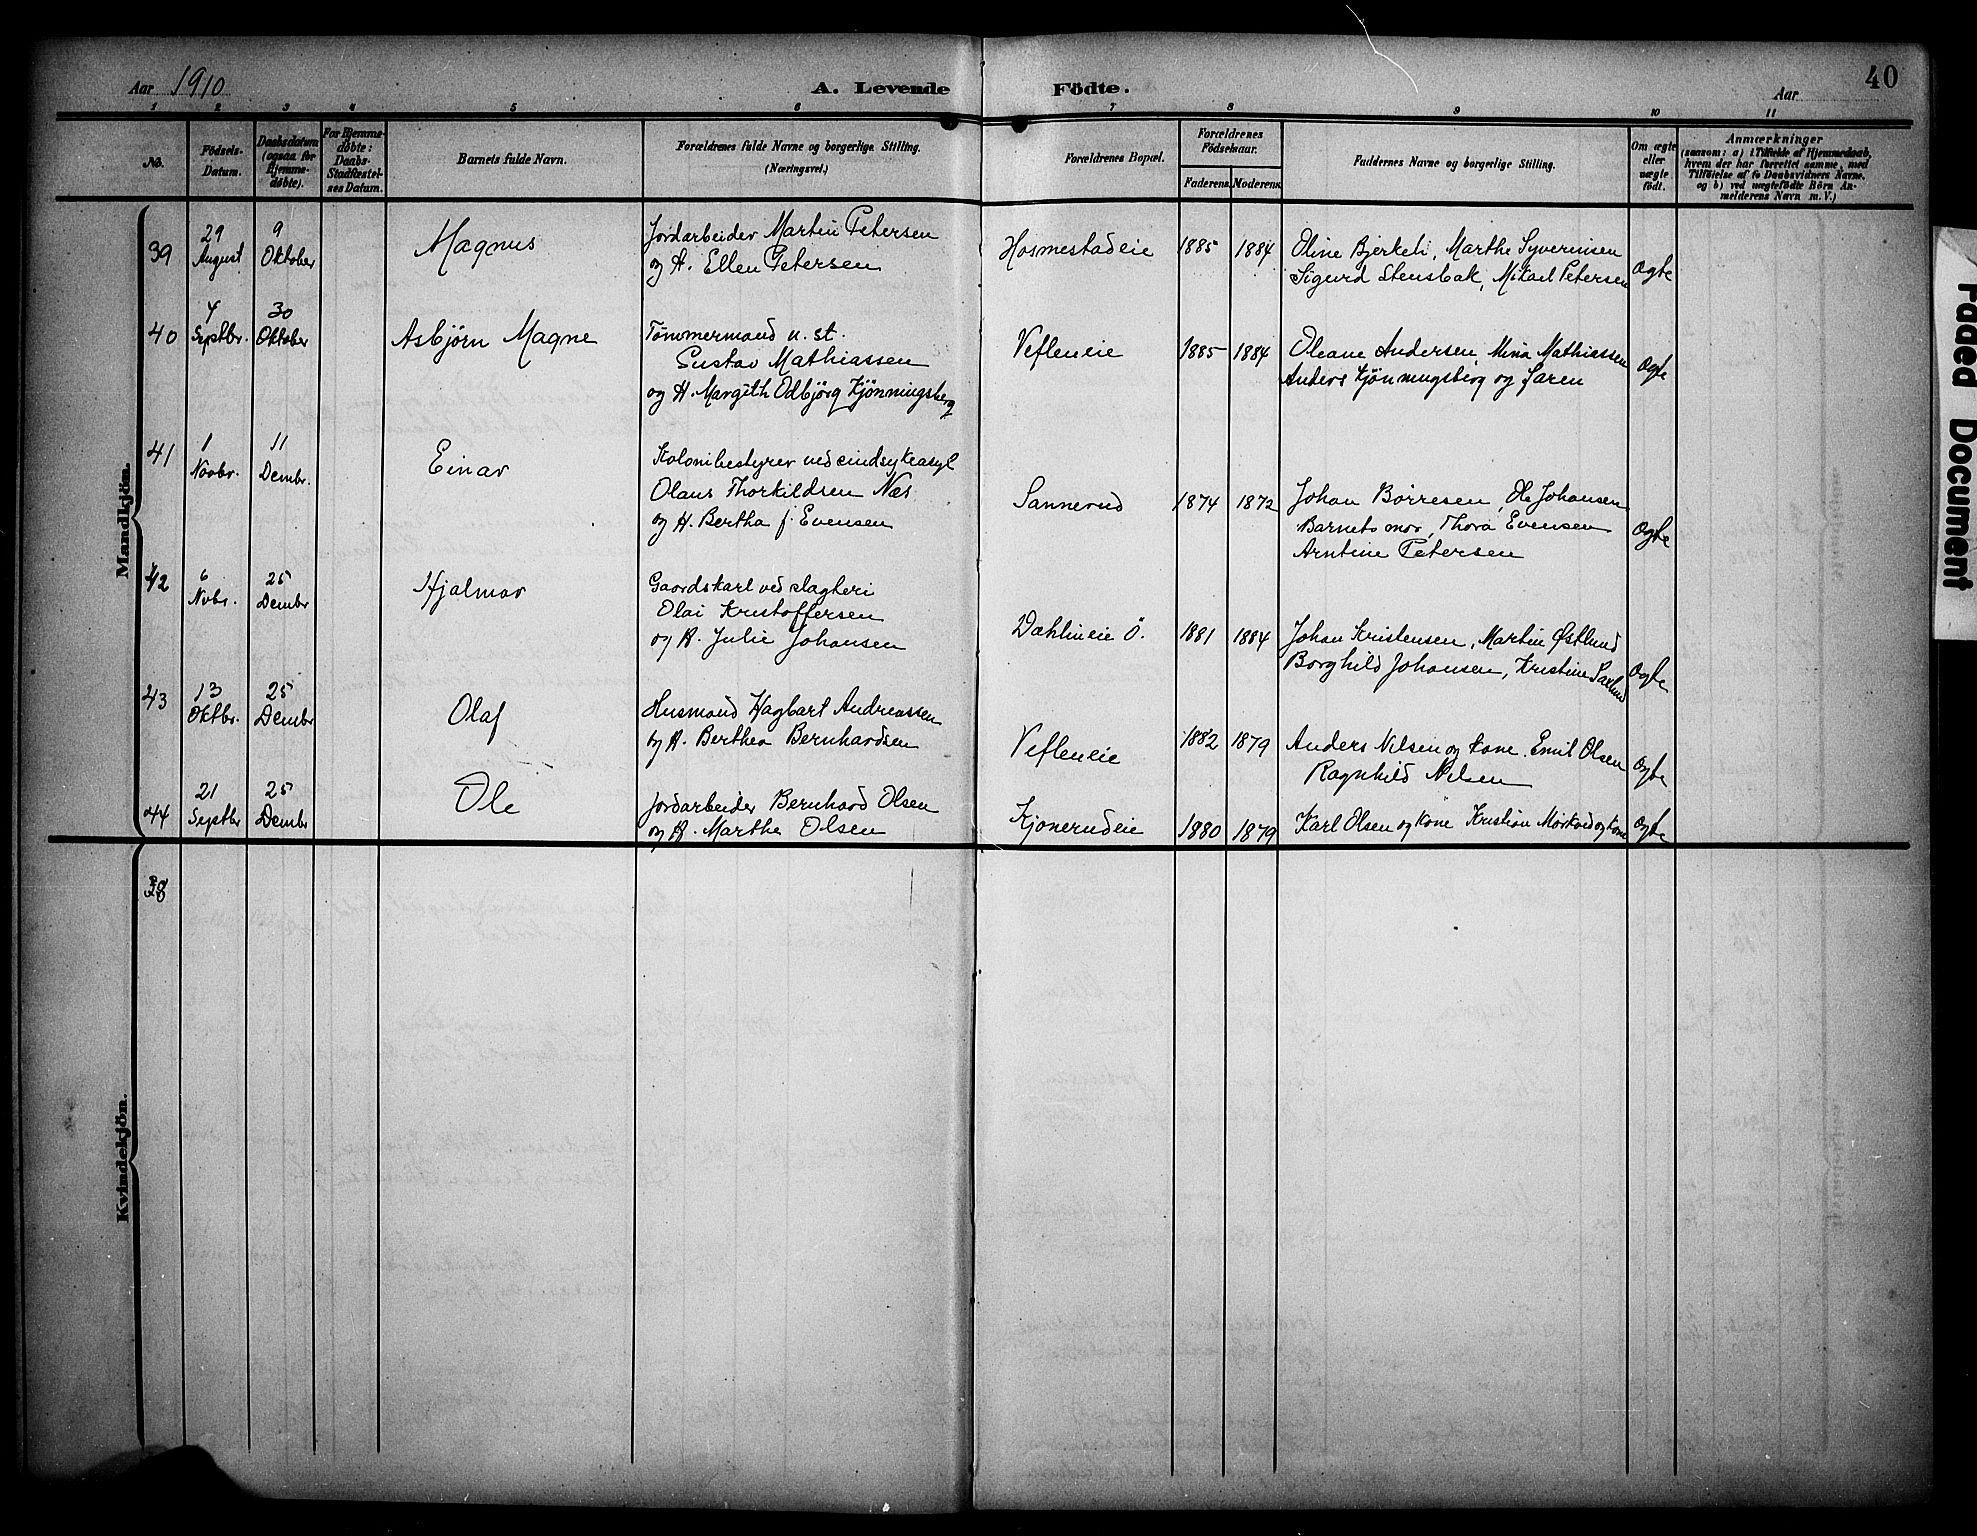 Aar 1910
A. Levende Födte.
Aar
40
1 2 3 4 5 6 7 8 9 10 11
No.
Födsels-
Datum.
Daabsdatum
(ogsaa for
Hjemme-
døbte).
For Hjemme-
døbte:
Daabs-
Stadfæstel-
ses Datum.
Barnets fulde Navn.
Forældrenes fulde Navne og borgerlige Stilling.
(Næringsvei.)
Forældrenes Bopæl.
Forældrenes
Födselsaar.
Faderens. Moderens.
Faddernes Navne og borgerlige Stilling.
Om ægte
eller
uægte
født.
Anmærkninger
(saasom: a) i Tilfælde af Hjemmedaab,
hvem der har forrettet samme, med
Tilföielse af to Daabsvidners Navne,
og b) ved uægtefödte Börn An-
melderens Navn m. V.)
Mandkjön.
39
29
August
9
Oktober
Magnus
Jordarbeider Martin Petersen
og H. Ellen Petersen
Hosmestadeie
1885 1884
Oline Bjerkeli, Marthe Syvernisen
Sigurd Stensbak, Mikael Petersen
Ogte
40
4
Septbr.
30
Oktober
Asbjörn Magne
Tömmermand u. st.
Gustav Mathiassen
og H. Margith Odbjörg Kjönningsberg
Vefleneie
1885 1884
Oleane Andersen, Mina Mathiassen
Anders Kjönningsberg og faren
Ogte
41
1
Novbr.
11
Dembr.
Einar
Kolonibestyrer ved sindsykeasyl
Olaus Thorkildsen Næs
og H. Bertha f. Evensen
Sannerud
1874 1872
Johan Börresen, Ole Johansen
Barnets mor, Thora Evensen
Arntine Petersen
Ogte
42
6
Nvbr.
25
Dembr
Hjalmar
Gaardskarl ved slagteri
Olai Kristoffersen
og H. Julie Johansen
Dæhlineie Ö.
1881 1884
Johan Kristensen, Martin Østlund
Borghild Johansen, Kristine Saxlund
Ogte
43
13
Oktbr.
25
Dembr
Olaf
Husmand Hagbart Andreassen
og H. Berthea Bernhardsen
Vefleneie
1882 1879
Anders Nilsen og kone Emil Olsen
Ragnhild Nilsen
Ogte
44
21
Septbr
25
Dembr
Ole
Jordarbeider Bernhard Olsen
og H. Marthe Olsen
Kjonerudeie
1880 1879
Karl Olsen og kone Kristian Mörkved og kone
Ogte
Kvindekjön.
38
Faded Document